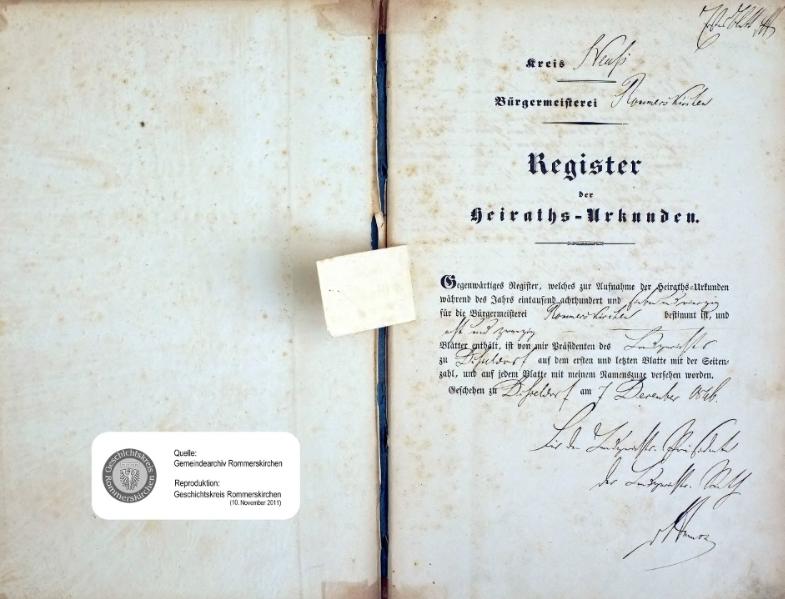 Geschichtskreis Rommerskirchen
Quelle:
Gemeindearchiv Rommerskirchen
Reproduktion:
Geschichtskreis Rommerskirchen
(10. November 2011)
Erstes Blatt
Kreis Neuß
Bürgermeisterei Rommerskirchen
Register
der
Heiraths-Urkunden.
Gegenwärtiges Register, welches zur Aufnahme der Heiraths-Urkunden
während des Jahrs eintausend achthundert und
für die Bürgermeisterei Rommerskirchen bestimmt ist, und
acht und zwanzig
Blätter enthält, ist von mir Präsidenten des Landgerichts
zu Düsseldorf auf dem ersten und letzten Blatte mit der Seiten-
zahl, und auf jedem Blatte mit meinem Namenszug versehen worden.
Geschehen zu Düsseldorf am 7 December
Für den Landgerichts-Präsidenten
der Landgerichts-Rath